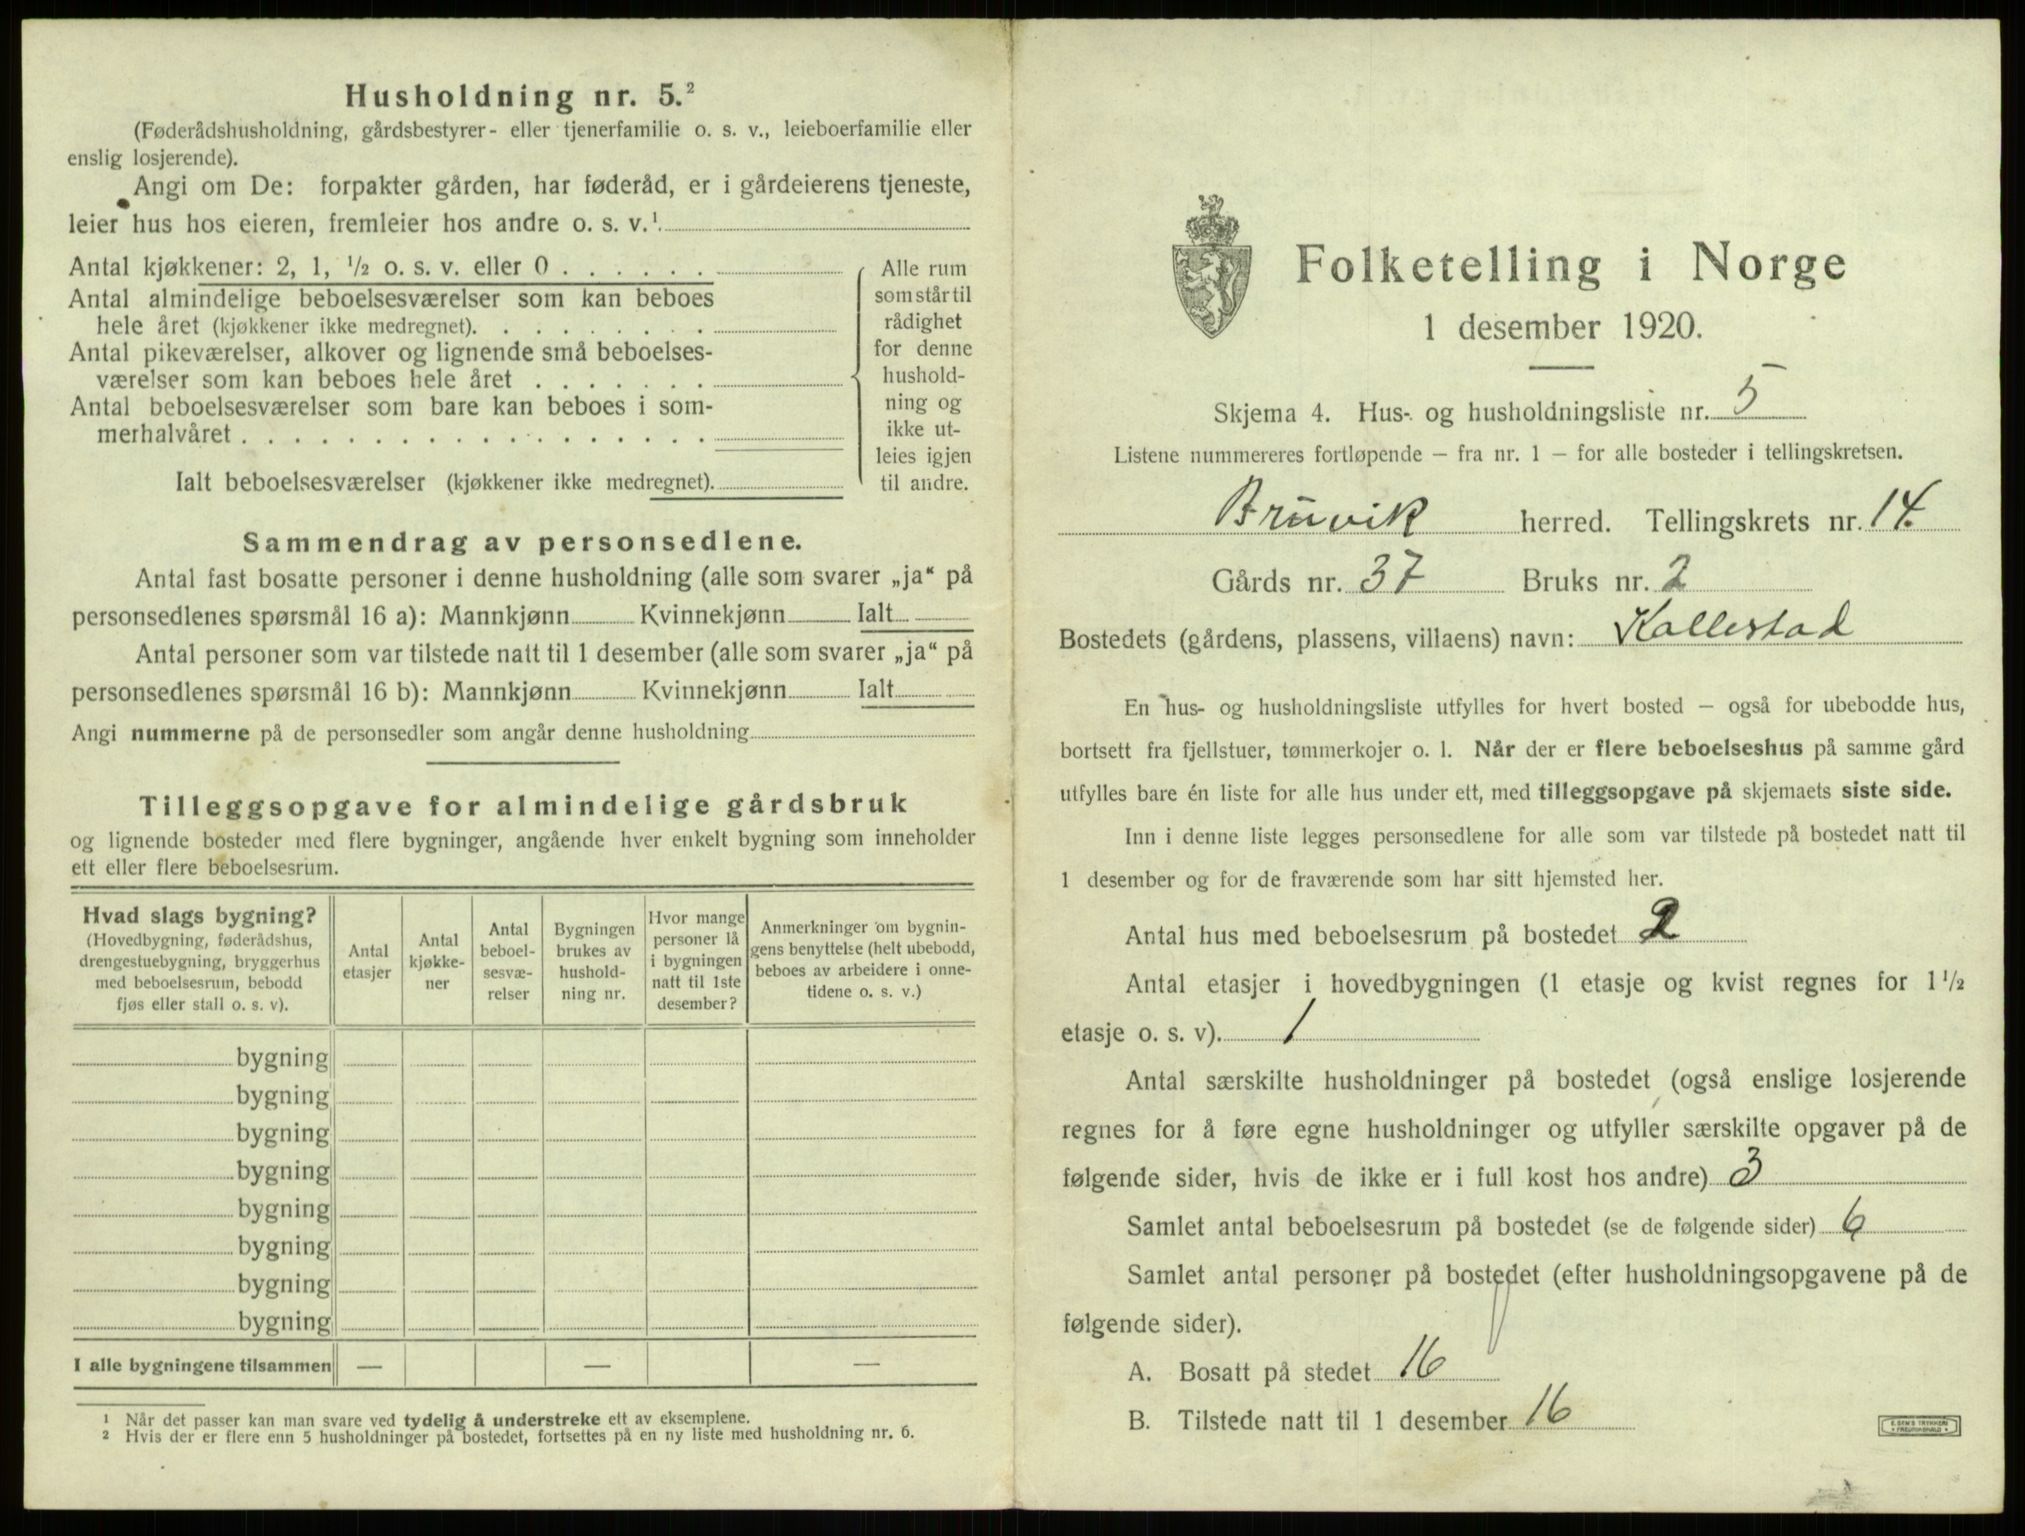 Husholdning nr. 5.²
(Føderådshusholdning, gårdsbestyrer- eller tjenerfamilie o. s. v., leieboerfamilie eller
enslig losjerende).
Angi om De: forpakter gården, har føderåd, er i gårdeierens tjeneste,
leier hus hos eieren, fremleier hos andre o. s. v.¹
Antal kjøkkener: 2, 1, ½ o. s. v. eller 0 . . . . . .
Antal almindelige beboelsesværelser som kan beboes
hele året (kjøkkener ikke medregnet). . . . . . . . .
Antal pikeværelser, alkover og lignende små beboelses-
værelser som kan beboes hele året . . . . . . .
Antal beboelsesværelser som bare kan beboes i som-
merhalvåret . . . . . . . . . . . . . . . . . .
Ialt beboelsesværelser (kjøkkener ikke medregnet).
Alle rum
som står til
rådighet
for denne
hushold-
ning og
ikke ut-
leies igjen
til andre.
Sammendrag av personsedlene.
Antal fast bosatte personer i denne husholdning (alle som svarer „ja“ på
personsedlenes spørsmål 16 a): Mannkjønn Kvinnekjønn Ialt
Antal personer som var tilstede natt til 1 desember (alle som svarer „ja“ på
personsedlenes spørsmål 16 b): Mannkjønn Kvinnekjønn Ialt
Angi nummerne på de personsedler som angår denne husholdning
Tilleggsopgave for almindelige gårdsbruk
og lignende bosteder med flere bygninger, angående hver enkelt bygning som inneholder
ett eller flere beboelsesrum.
Hvad slags bygning?
(Hovedbygning, føderådshus,
drengestuebygning, bryggerhus
med beboelsesrum, bebodd
fjøs eller stall o. s. v).
Antal
etasjer
Antal
kjøkke-
ner
Antal
beboel-
sesvæ-
relser
Bygningen
brukes av
hushold-
ning nr.
Hvor mange
personer lå
i bygningen
natt til 1ste
desember?
Anmerkninger om bygnin-
gens benyttelse (helt ubebodd,
beboes av arbeidere i onne-
tidene o. s. v.)
bygning
bygning
bygning
bygning
bygning
bygning
bygning
bygning
I alle bygningene tilsammen — — —
1 Når det passer kan man svare ved tydelig å understreke ett av eksemplene.
2 Hvis der er flere enn 5 husholdninger på bostedet, fortsettes på en ny liste med husholdning nr. 6.
Folketelling i Norge
1 desember 1920.
Skjema 4. Hus- og husholdningsliste nr. 5
Listene nummereres fortløpende – fra nr. 1 – for alle bosteder i tellingskretsen.
Bruvik herred. Tellingskrets nr. 14.
Gårds nr. 37 Bruks nr. 2
Bostedets (gårdens, plassens, villaens) navn: Kallestad
En hus- og husholdningsliste utfylles for hvert bosted – også for ubebodde hus,
bortsett fra fjellstuer, tømmerkojer o. l. Når der er flere beboelseshus på samme gård
utfylles bare én liste for alle hus under ett, med tilleggsopgave på skjemaets siste side.
Inn i denne liste legges personsedlene for alle som var tilstede på bostedet natt til
1 desember og for de fraværende som har sitt hjemsted her.
Antal hus med beboelsesrum på bostedet 2
Antal etasjer i hovedbygningen (1 etasje og kvist regnes for 1½
etasje o. s. v). 1
Antal særskilte husholdninger på bostedet (også enslige losjerende
regnes for å føre egne husholdninger og utfyller særskilte opgaver på de
følgende sider, hvis de ikke er i full kost hos andre) 3
Samlet antal beboelsesrum på bostedet (se de følgende sider) 6
Samlet antal personer på bostedet (efter husholdningsopgavene på de
følgende sider).
A. Bosatt på stedet 16
B. Tilstede natt til 1 desember 16
E. SEM'S TRYKKERI
FREDRIKSHALD